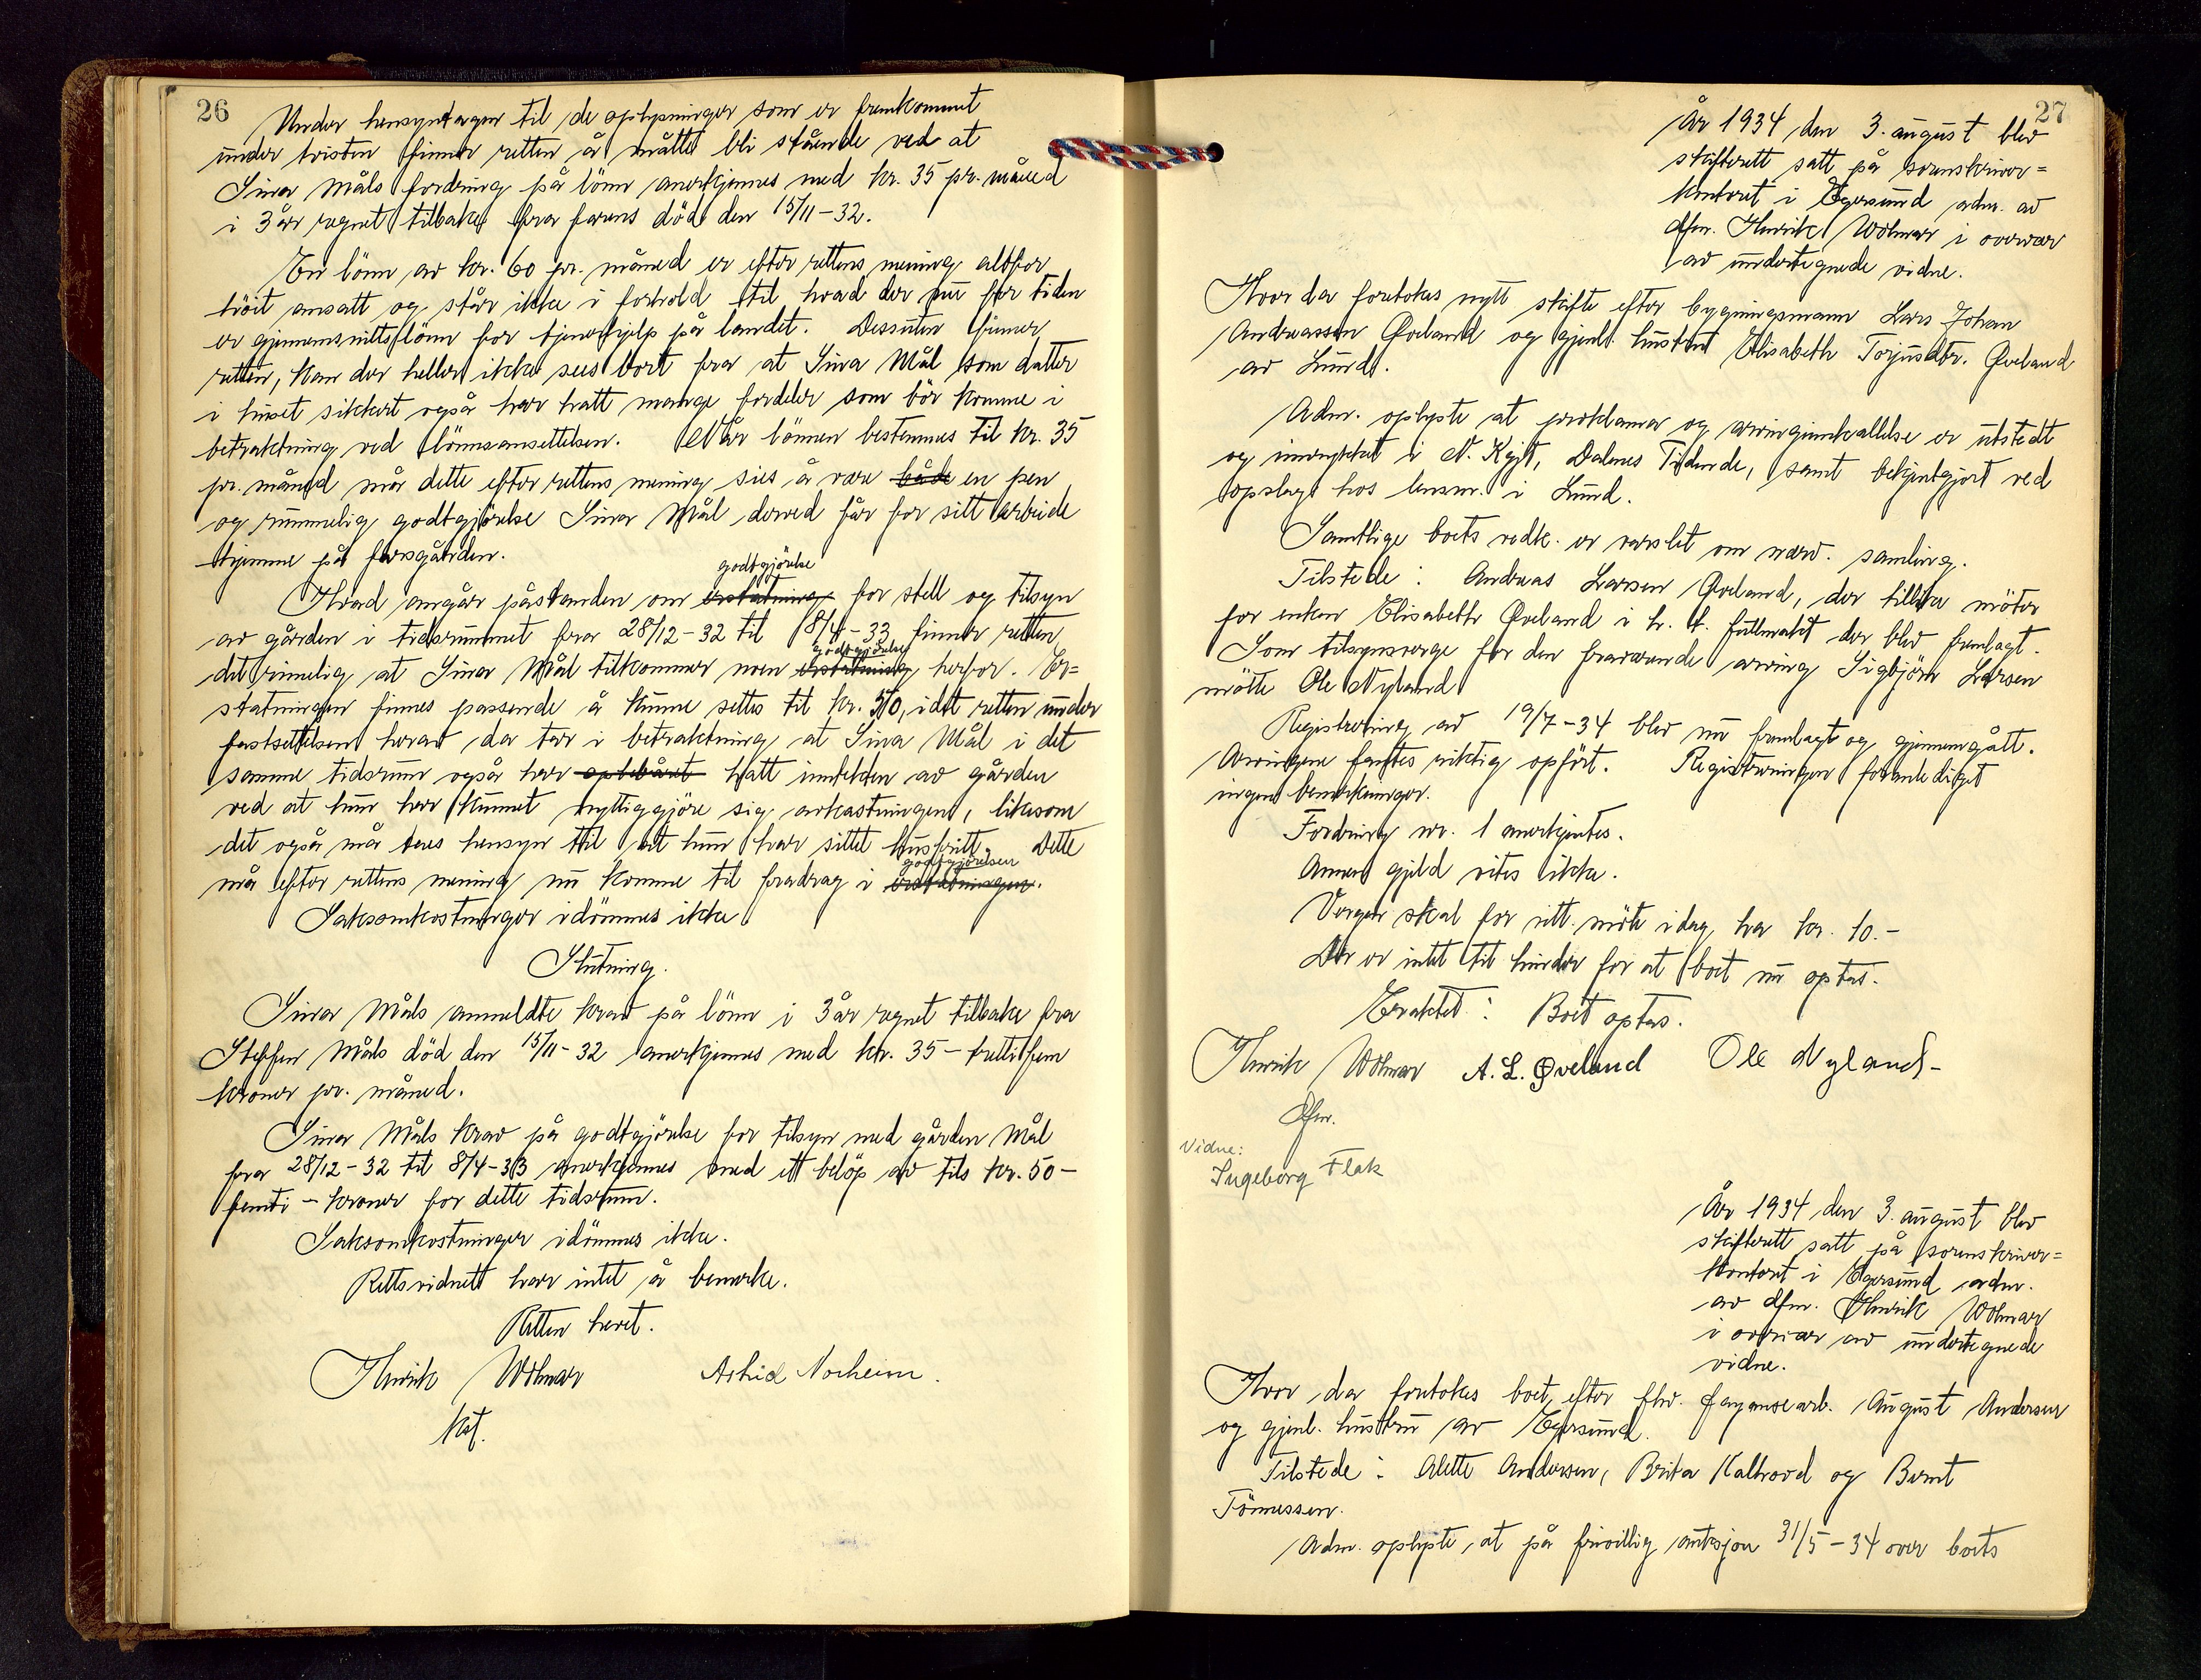 26
Under hensyntagen til de oplysninger som er fremkommet
under tvisten finner retten å måtte bli stående ved at
Sina Måls fordring på lönn anerkjennes med kr. 35 pr. måned
i 3 år regnet tilbake fra farens död den 15/11-32.
En lönn av kr. 60 pr. måned er efter rettens mening altfor
höit ansatt og står ikke i forhold til hvad der nu for tiden
er gjennemsnittslönn for tjenerhjelp på landet. Dessuten finner
retten, kan der heller ikke sees bort fra at Sina Mål som datter
i huset sikkert også har hatt mange fordeler som bör komme i
betraktning ved lönnsansettelsen. Når lönnen bestemmes til kr. 35
pr. måned må dette efter rettens mening sies å være både en pen
og rummelig godtgjörelse Sina Mål derved får for sitt arbeide
hjemme på farsgården.
godtgjörelse
Hvad angår påstanden om erstatning for stell og tilsyn
av gården i tidsrummet fra 28/12-32 til 8/4-33 finner retten
godtgjörelse
det rimelig at Sina Mål tilkommer noen erstatning herfor. Er=
statningen finnes passende å kunne settes til kr. 50, idet retten under
fastsettelsen herav da tar i betraktning at Sina Mål i det
samme tidsrum også har oplebåret hatt inntekten av gården
ved at hun har kunnet nyttiggjöre sig avkastningen, likesom
det også må tas hensyn til at hun har sittet husfritt. Dette
godtgjörelsen
må efter rettens mening nu komme til fradrag i erstatningen.
Saksomkostninger idömmes ikke
Slutning.
Sina Måls anmeldte krav på lönn i 3 år regnet tilbake fra
Steffen Måls död den 15/11-32 anerkjennes med kr. 35 – trettifem
kroner pr. måned.
Sina Måls krav på godtgjörelse for tilsyn med gården Mål
fra 28/12-32 til 8/4-33 anerkjennes med ett belöp av tils kr. 50 –
femti – kroner for dette tidsrum.
Saksomkostninger idömmes ikke.
Rettsvidnett har intet å bemerke.
Retten hevet.
Henrik Wolmar Astrid Norheim.
kst.
27
År 1934 den 3. august blev
skifterett satt på sorenskriver=
kontoret i Egersund adm. av
dfm. Henrik Wolmar i overvær
av undertegnede vidne.
Hvor da foretokes nytt skifte efter bygningsmann Lars Johan
Andreassen Öveland og gjenl. hustru Elisabeth Torjusdtr. Öveland
av Lund.
Adm. oplyste at proklama og arvinginnkallelse er utstedt
og innrykket i N. Kgjt, Dalenes Tidende, samt bekjentgjort ved
opslag hos lensm. i Lund.
Samtlige boets vedk. er varslet om nærv. samling.
Tilstede: Andreas Larsen Öveland, der tillike möter
for enken Elisabeth Öveland i h. t. fullmakt der blev fremlagt.
Som tilsynsverge for den fraværende arving Sigbjörn Larsen
mötte Ole Nyland
Registrering av 19/7-34 blev nu fremlagt og gjennemgått.
Arvingene fantes riktig opfört. Registreringen foranlediget
ingen bemerkninger.
Fordring nr. 1 anerkjentes.
Annen gjeld vites ikke.
Vergen skal for sitt möte idag ha kr. 10.-
Der er intet til hinder for at boet nu optas.
Eraktet: Boet optas.
Henrik Wolmar A. L. Øveland Ole Nyland-
Dfm.
Vidne:
Ingeborg Flak
År 1934 den 3. august blev
skifterett satt på sorenskriver=
kontoret i Egersund adm.
av dfm. Henrik Wolmar
i overvær av undertegnede
vidne.
Hvor da foretokes boet efter fhv. fayansearb. August Andersen
og gjenl. hustru av Egersund.
Tilstede: Alette Andersen, Brita Kalhovd og Bernt
Tönnessen.
Adm. oplyste, at på frivillig auksjon 31/5-34 over boets